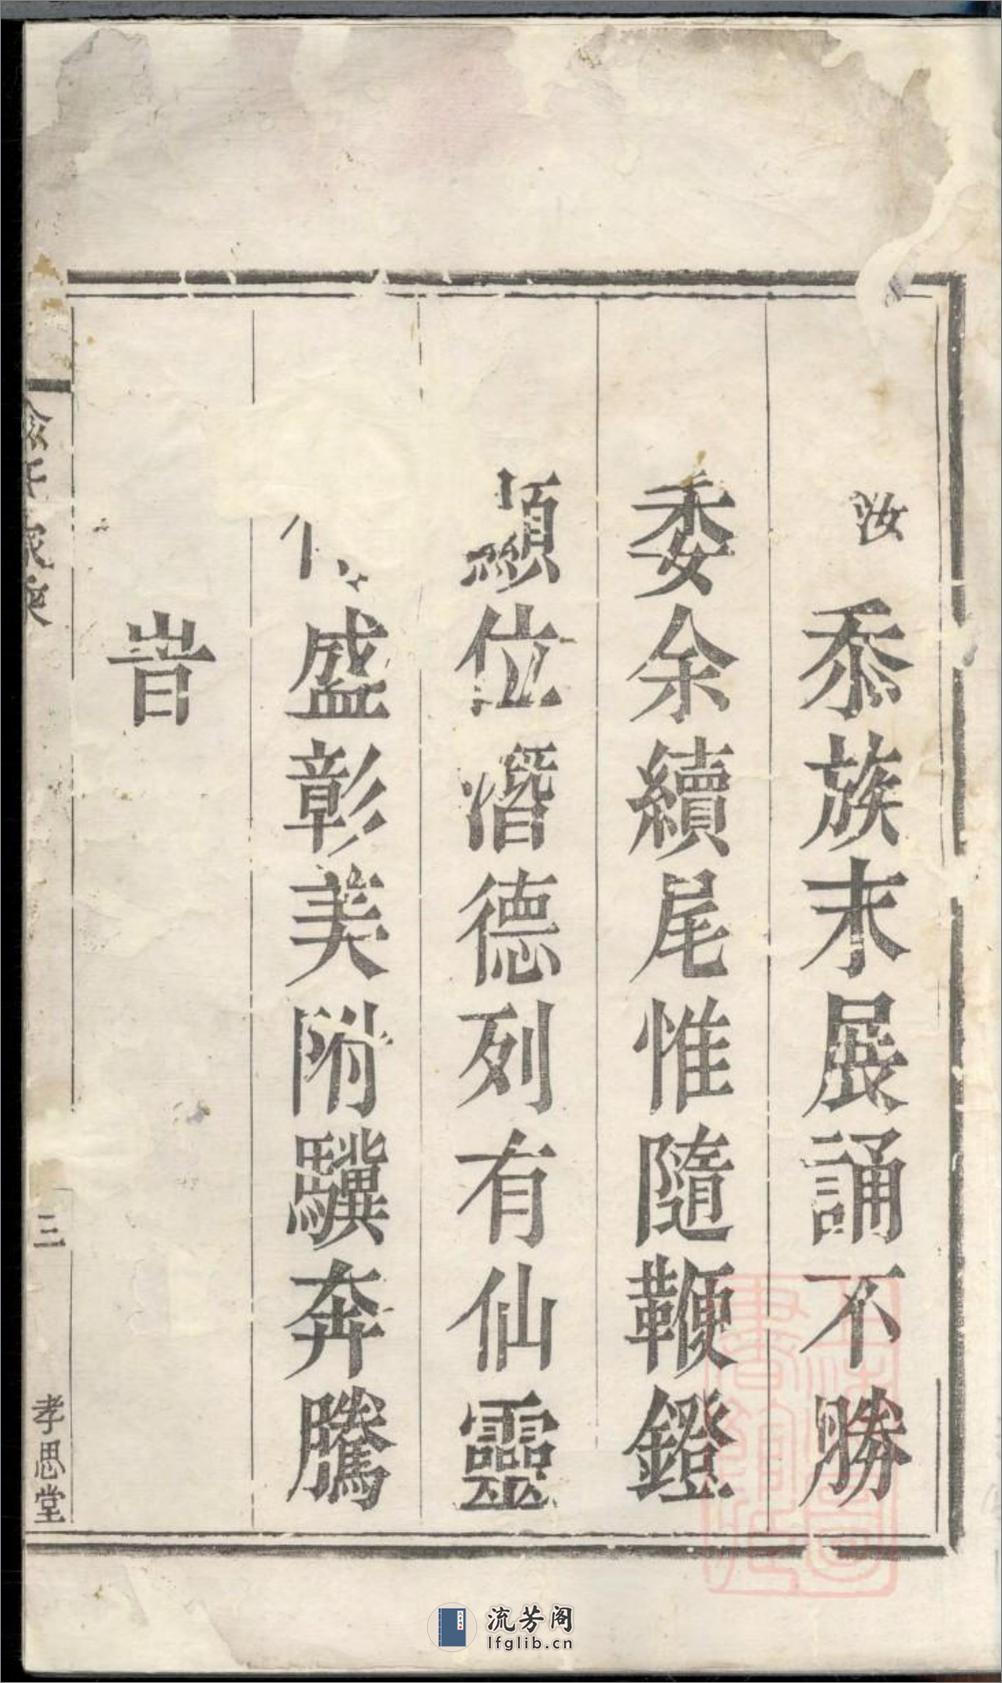 汝忝族末展誦不勝
委余續尾惟隨鞭鐙
顯位潛德列有仙靈
盛彰美附驥奔騰
旹
三
孝思堂
流芳阁
lfglib.cn